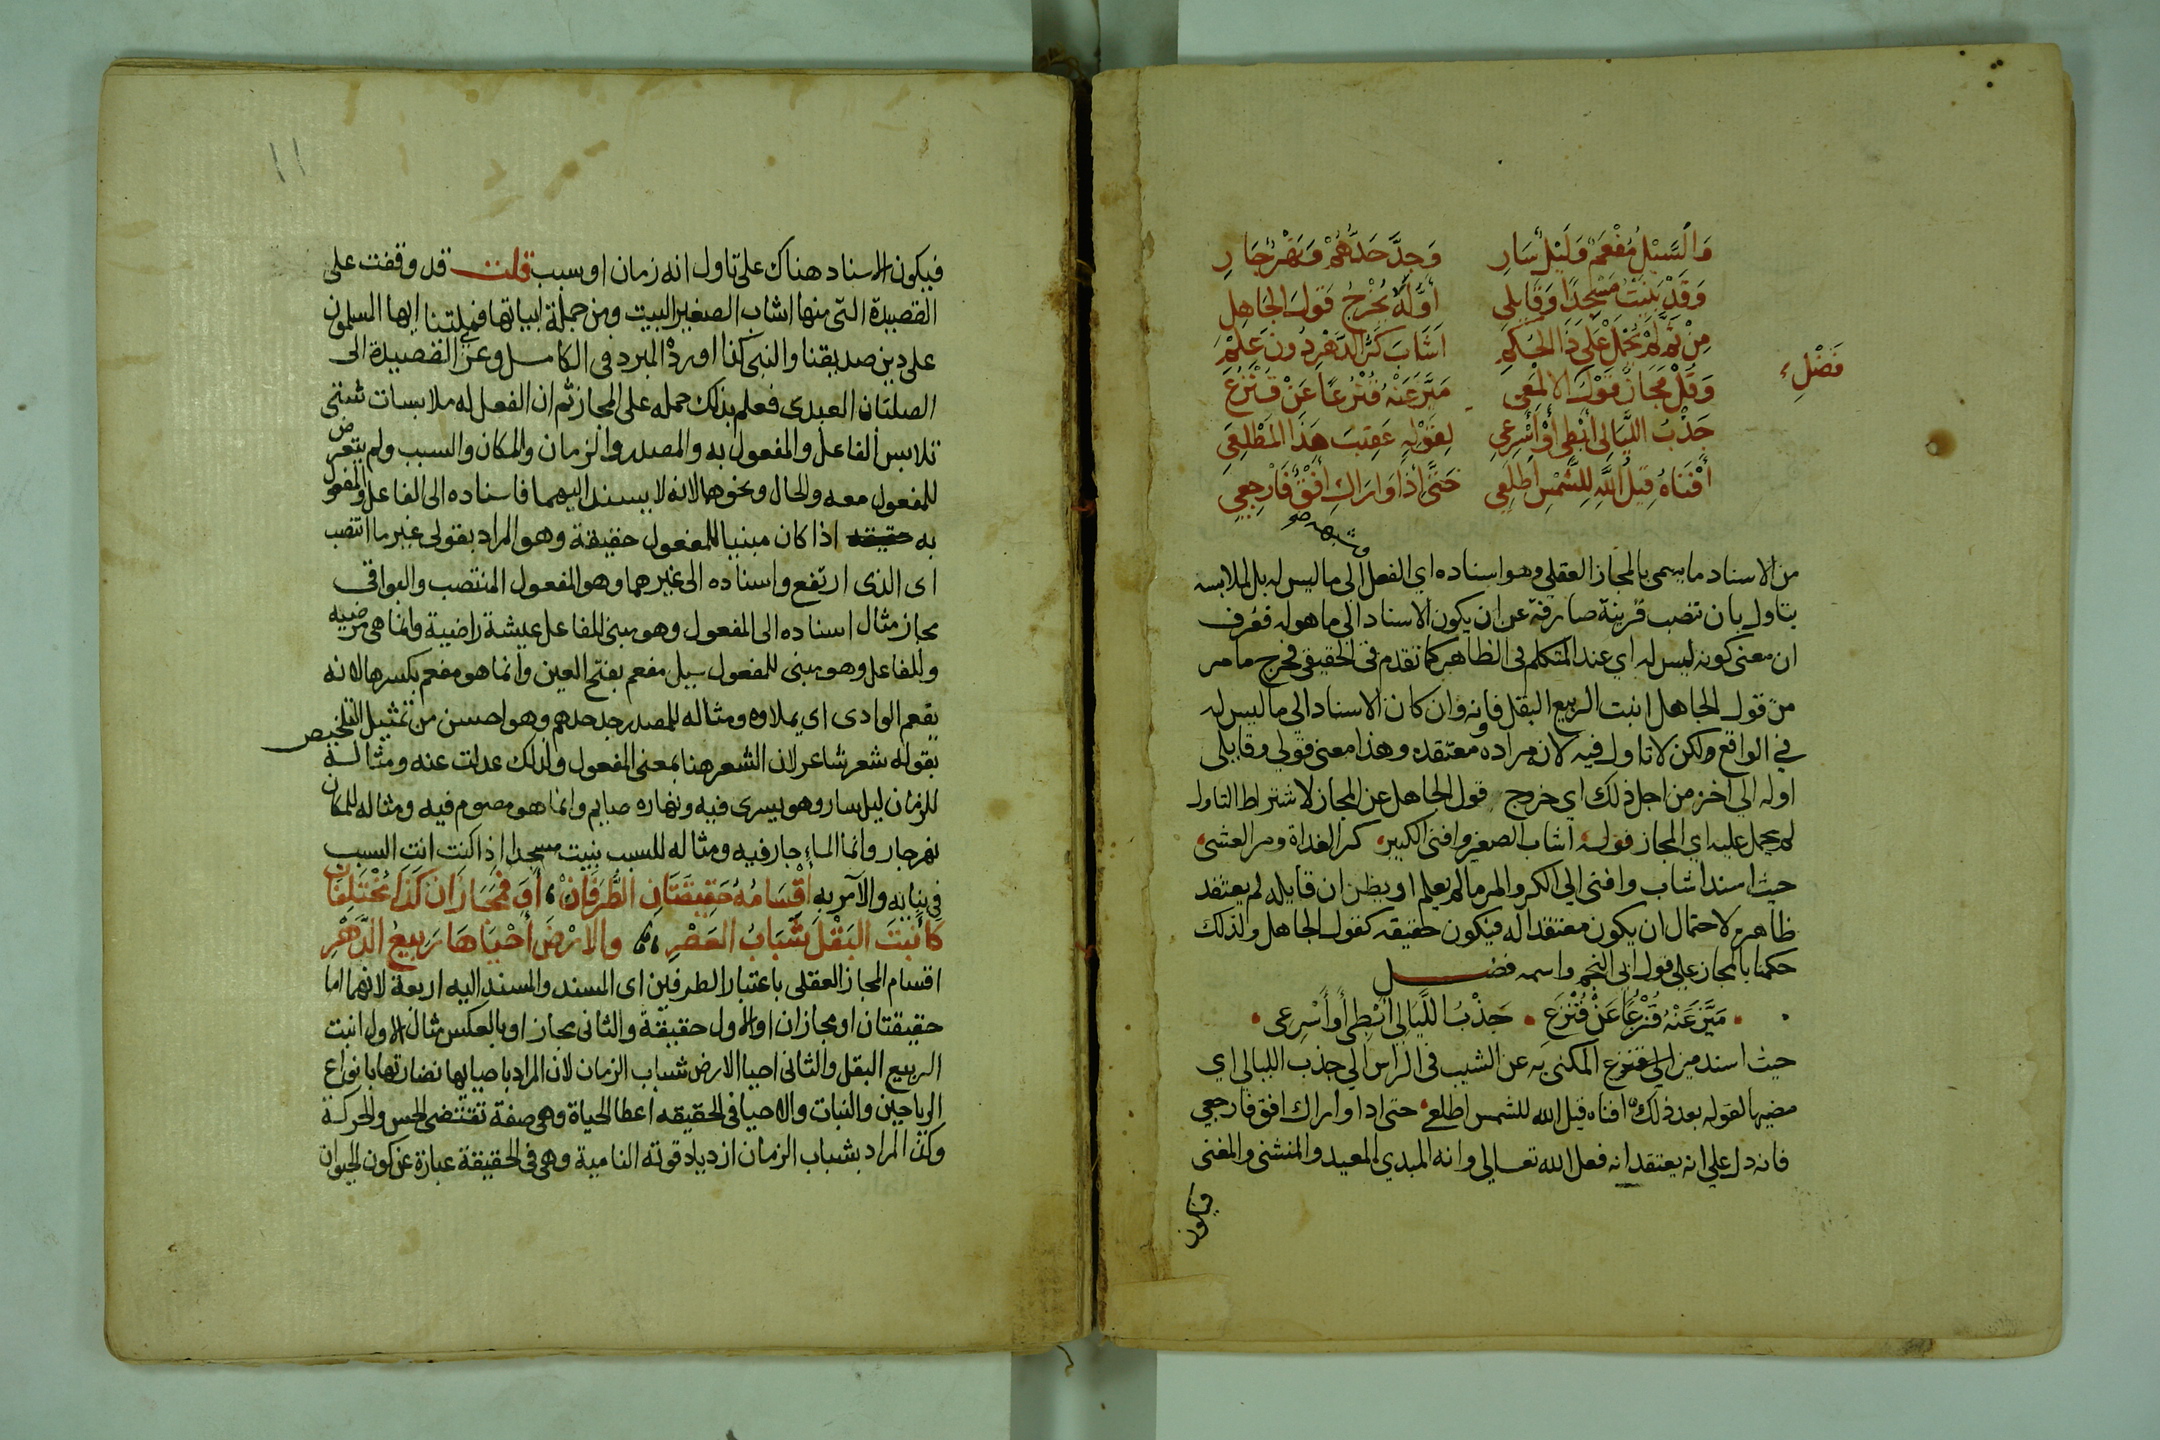 وَالسَّيْلُ مُفْعَمٌ وَلَيْلٌ سَارِ وَجِدَّ جَدُّهُمْ وَنَهْرٌ جَارِ
وَقَدْ بَنَيْتُ مَسْجِدًا وَقَايِلِي أَوَّلَهُ يُخْرِجُ قَوْلَ الجَاهِلِ
مِنْ ثَمَّ لَمْ يُحْمَلْ عَلَى ذَا الحُكْمِ أَشَابَ كَرُّ الدَّهْرِ دُونَ عِلْمِ
فَضْلِ
وَقُلْ مَجَازٌ قَوْلَ الالْمَعِي مَيَّزَ عَنْهُ قُنْزُعًا عَنْ قُنْزُعِ
جَذْبُ اللَّيَالِي أَبْطِي أَوْ أَسْرِعِي لِقَوْلِهِ عَقِيبَ هَذَا المَطْلَعِ
أَفْنَاهُ قِيلُ اللَّهِ لِلشَّمْسِ اطْلُعِي حَتَّى اذَا وَارَاكِ أُفْقٌ فَارْجِعِي
من الاسناد ما يسمى بالمجاز العقلي وهو اسناده اي الفعل الى ما ليس له بل لملابسه
بتاول بان تنصب قرينة صارفة عن ان يكون الاسناد الى ما هو له فعرف
ان معنى كونه ليس له اي عند المتكلم في الظاهر كما تقدم في الحقيقي فخرج ما مر
من قول الجاهل انبت الربيع البقل فانه وان كان الاسناد الي ما ليس له
في الواقع ولكن لا تاول فيه لان مراده ومعتقده وهذا معنى قولي وقايلي
اوله الي اخره من اجل ذلك اي خروج قول الجاهل عن المجاز لاشتراط التاول
لم يحمل عليه اي المجاز قوله اشاب الصغير وافنى الكبير كر الغداة ومر العشى
حيث اسند اشاب وافنى الي الكر والمر ما لم يعلم او يظن ان قايله لم يعتقد
ظاهره لاحتمال ان يكون معتقدا له فيكون حقيقه كقول الجاهل ولذلك
حكمنا بالمجاز علي قول ابي النجم واسمه فضل
مَيَّزَ عَنْهُ قُنْزُعًا عَنْ قُنْزُعِ جَذْبُ اللَّيَالِي أَبْطِي أَوْ أَسْرِعِي
حيث اسند ميز الى قنزع المكنى به عن الشيب في الراس الي جذب الليالي اي
مضيها لقوله بعد ذلك افناه قيل الله للشمس اطلعي حتى اذا واراك افق فارجعي
فانه دل علي انه يعتقد انه فعل الله تعالي وانه المبدي المعيد والمنشي والمفنى
فيكون
١١
فيكون الاسناد هناك على تاول انه زمان او سبب قلت قد وقفت على
القصيدة التي منها اشاب الصغير البيت ومن جملة ابياتها فملتنا ايها المسلمون
على دين صديقنا والنبي كذا اورده المبرد في الكامل وعزى القصيدة الى
الصلتان العبدي فعلم بذلك حمله على المجاز ثم ان الفعل له ملابسات شتى
تلابس الفاعل والمفعول به والمصدر والزمان والمكان والسبب ولم يتعرض
للمفعول معه والحال ونحوهما لانه لا يسند اليهما فاسناده الى الفاعل والمفعول
به اذا كان مبنيا للمفعول حقيقة وهو المراد بقولى غير ما انتصب
اى الذى ارتفع واسناده الى غيرهما وهو المفعول المنتصب والبواقى
مجاز مثال اسناده الى المفعول وهو مبنى للفاعل عيشة راضية وانما هى مرضيه
وللفاعل وهو مبنى للمفعول سيل مفعم بفتح العين وانما هو مفعم بكسرها لانه
يفعم الوادى اي يملاوه ومثاله للمصدر جد جدهم وهو احسن من تمثيل التلخيص
بقوله شعر شاعر لان الشعر هنا بمعنى المفعول ولذلك عدلت عنه ومثاله
للزمان ليل سار وهو يسرى فيه ونهاره صايم وانما هو مصوم فيه ومثاله للمكان
نهر جار وانما الماء جار فيه ومثاله للسبب بنيت مسجدا اذا كنت انت السبب
في بنايه والآمر به أَقْسَامُهُ حَقِيقَتَانِ الطَّرَفَانْ أَوْ فَمَجَازَانِ كَذَا مُخْتَلِفَانْ
كَأَنْبَتَ البَقْلَ شَبَابُ العَصْرِ والارْضَ أَحْيَاهَا رَبِيعُ الدَّهْرِ
اقسام المجاز العقلى باعتبار الطرفين اى المسند والمسند اليه اربعة لانهما اما
حقيقتان او مجازان او الاول حقيقة والثانى مجاز او بالعكس مثال الاول انبت
الربيع البقل والثانى احيا الارض شباب الزمان لان المراد باحيايها نضارتها بانواع
الرياحين والنبات والاحيا في الحقيقه اعطا الحياة وهى صفة تقتضى الحس والحركة
وكذا المراد بشباب الزمان ازدياد قوته النامية وهى في الحقيقة عبارة عن كون الحيوان